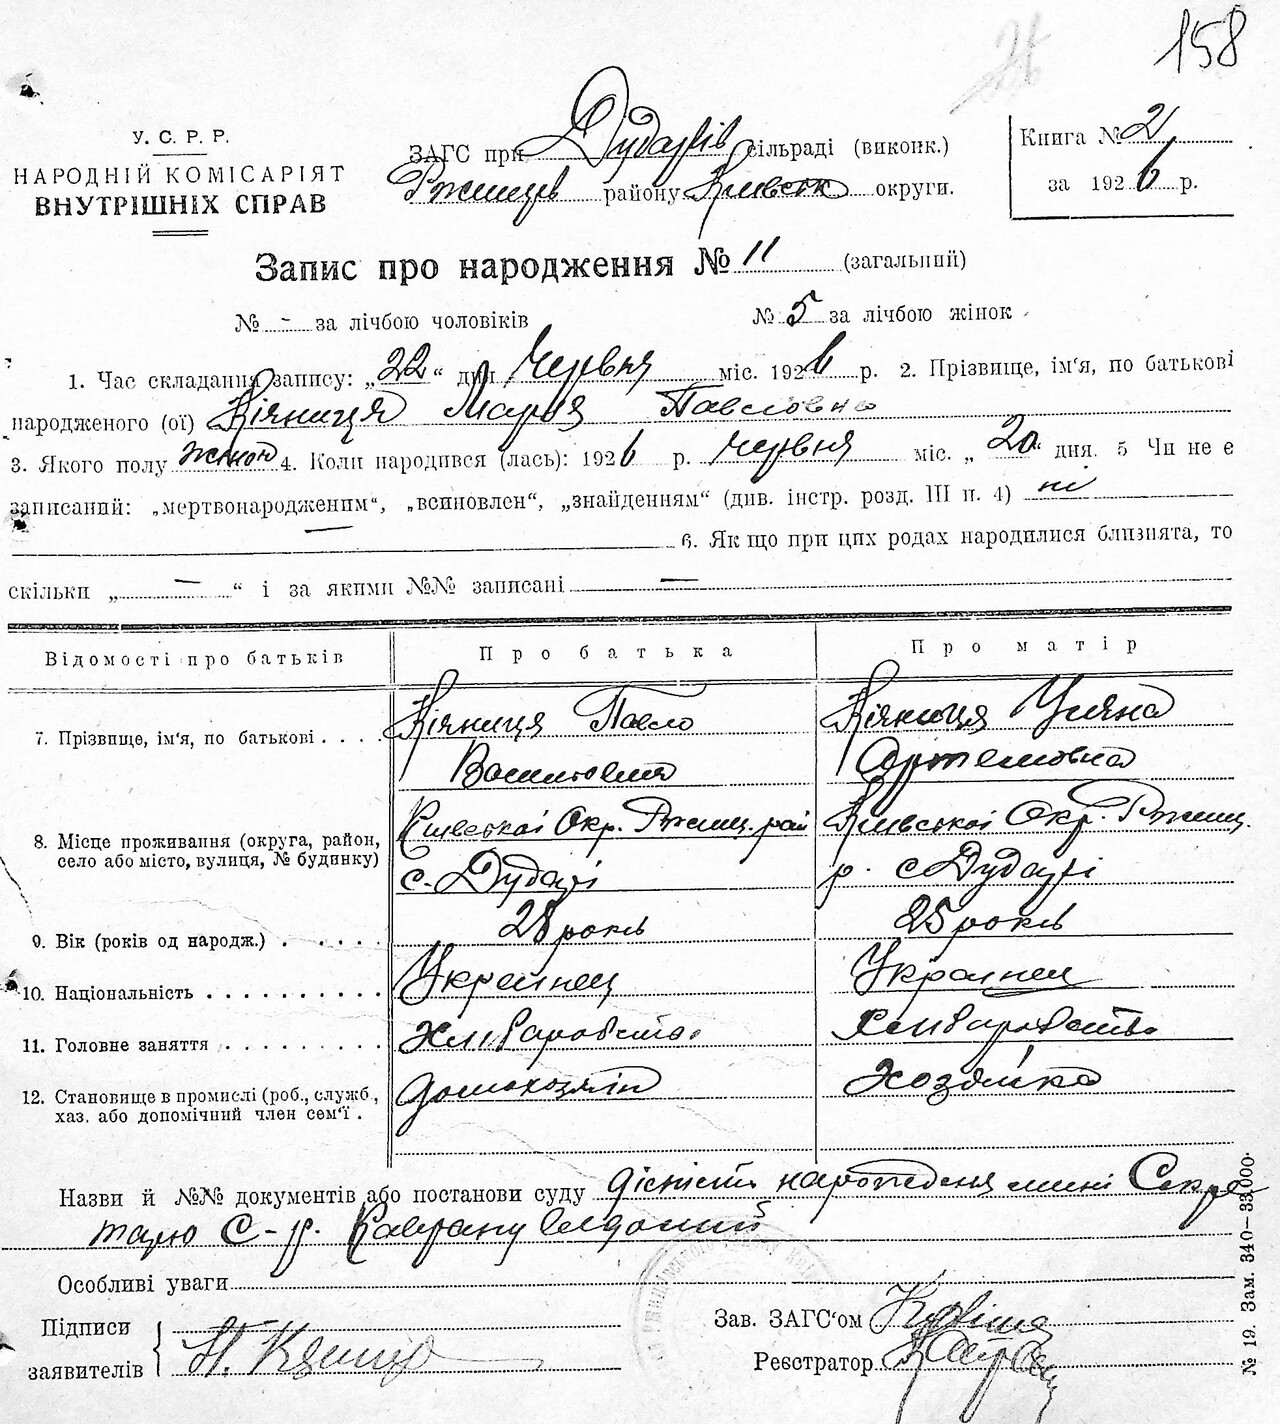 158
У. С. Р. Р.
НАРОДНІЙ КОМІСАРІЯТ
ВНУТРІШНІХ СПРАВ
ЗАГС при Дударів сільраді (виконк.)
Ржищев району Київськ округи.
Книга № 2
за 1926 р.
Запис про народження № 11 (загальний)
№ - за лічбою чоловіків № 5 за лічбою жінок
1. Час складання запису: „22“ дня червня міс. 1926 р. 2. Прізвище, ім'я, по батькові
народженого (ої) Кіяниця Марія Павловна
3. Якого полу жіноч 4. Коли народився (лась): 1926 р. червня міс. „20“ дня. 5 Чи не є
записаний: „мертвонародженим“, „всиновлен“, „знайденням“ (див. інстр. розд. III п. 4) ні
— 6. Як що при цих родах народилися близнята, то
скільки „ — “ і за якими №№ записані —
Відомості про батьків Про батька Про матір
7. Прізвище, ім'я, по батькові . . . . Кіяниця Павло Кіяниця Уляна
Артемовна
8. Місце проживання (округа, район, село або місто, вулиця, № будинку) Київської Окр. Ржищ. рай Київської Окр. Ржищ.
с. Дударі р. с Дударі
9. Вік (років од народж.) . . . . . 28 років 25 років
10. Національність . . . . . . . . . . Украінец Украінец
11. Головне заняття . . . . . . . . . Хліборобство Хліборобство
12. Становище в промислі (роб., служб., хаз. або допомічний член сем'ї . домохозяін хозяйка
Назви й №№ документів або постанови суду дісність народження мині Секре
тарю С-р. відомий
Особливі уваги
Підписи
заявителів П.
Зав. ЗАГС'ом
Реєстратор
№ 19. Зам. 340—33.000.